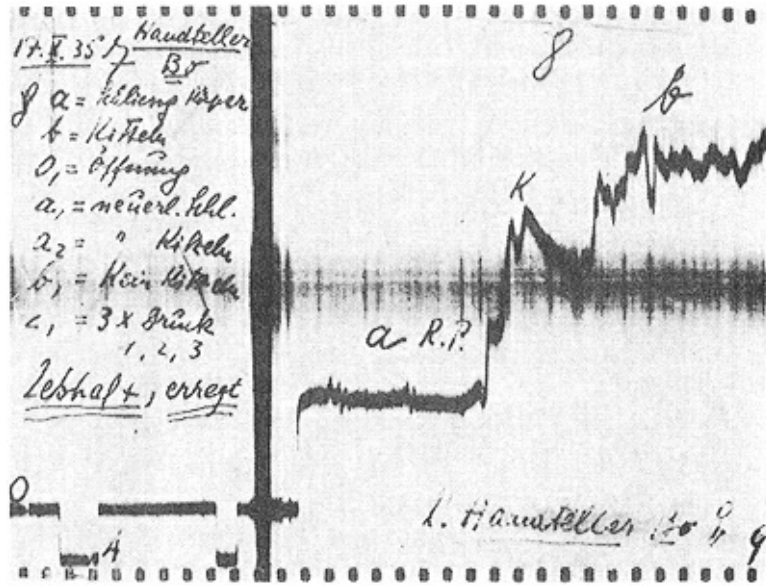 17. X. 35 Handteller
Bo
8 a = Körper
b = Kitzeln
O₁ = Öffnung
a₁ = neuerl. Schl.
a₂ = " Kitzeln
b₁ = Kein Kitzeln
c₁ = 3 x Druck
1, 2, 3
Lebhaft, erregt
8
b
K
a R.P.
O
4
L. Handteller Bo